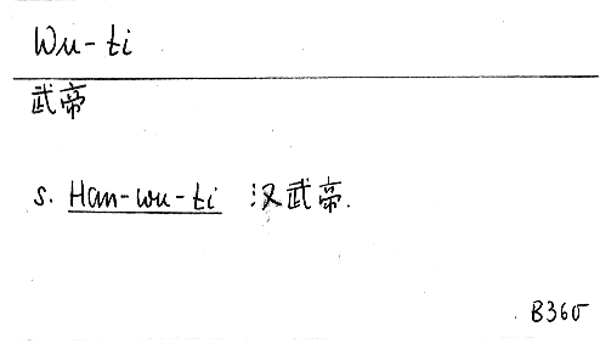 Wu-ti
武帝
s. Han-wu-ti 汉武帝.
B365